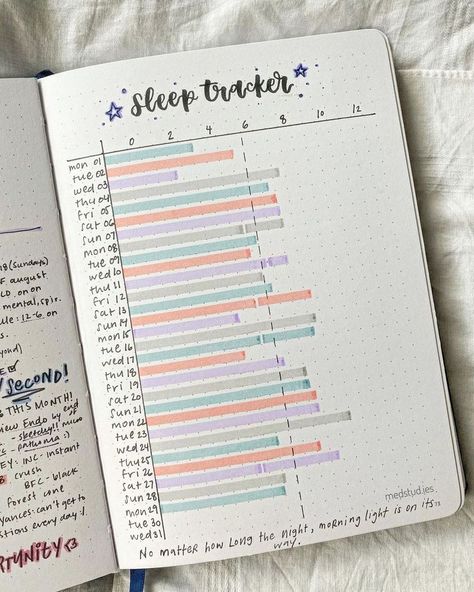 sleep tracker
0 2 4 6 8 10 12
mon 01
tue 02
wed 03
thu 04
fri 05
sat 06
sun 07
mon 08
tue 09
wed 10
thu 11
fri 12
sat 13
sun 14
mon 15
tue 16
wed 17
thu 18
fri 19
sat 20
sun 21
mon 22
tue 23
wed 24
thu 25
fri 26
sat 27
sun 28
mon 29
tue 30
wed 31
medstud.ies
No matter how long the night, morning light is on its
way.
18 (sundays)
of august
on on
mental,
: 12-6 on
SECOND!
THIS MONTH!
view Endo by end
- sketchy!!
- pathoma :)
EY: INC-instant
crush
BFC-black
forest
can't get to
stions every day :/
RTUNITY <3